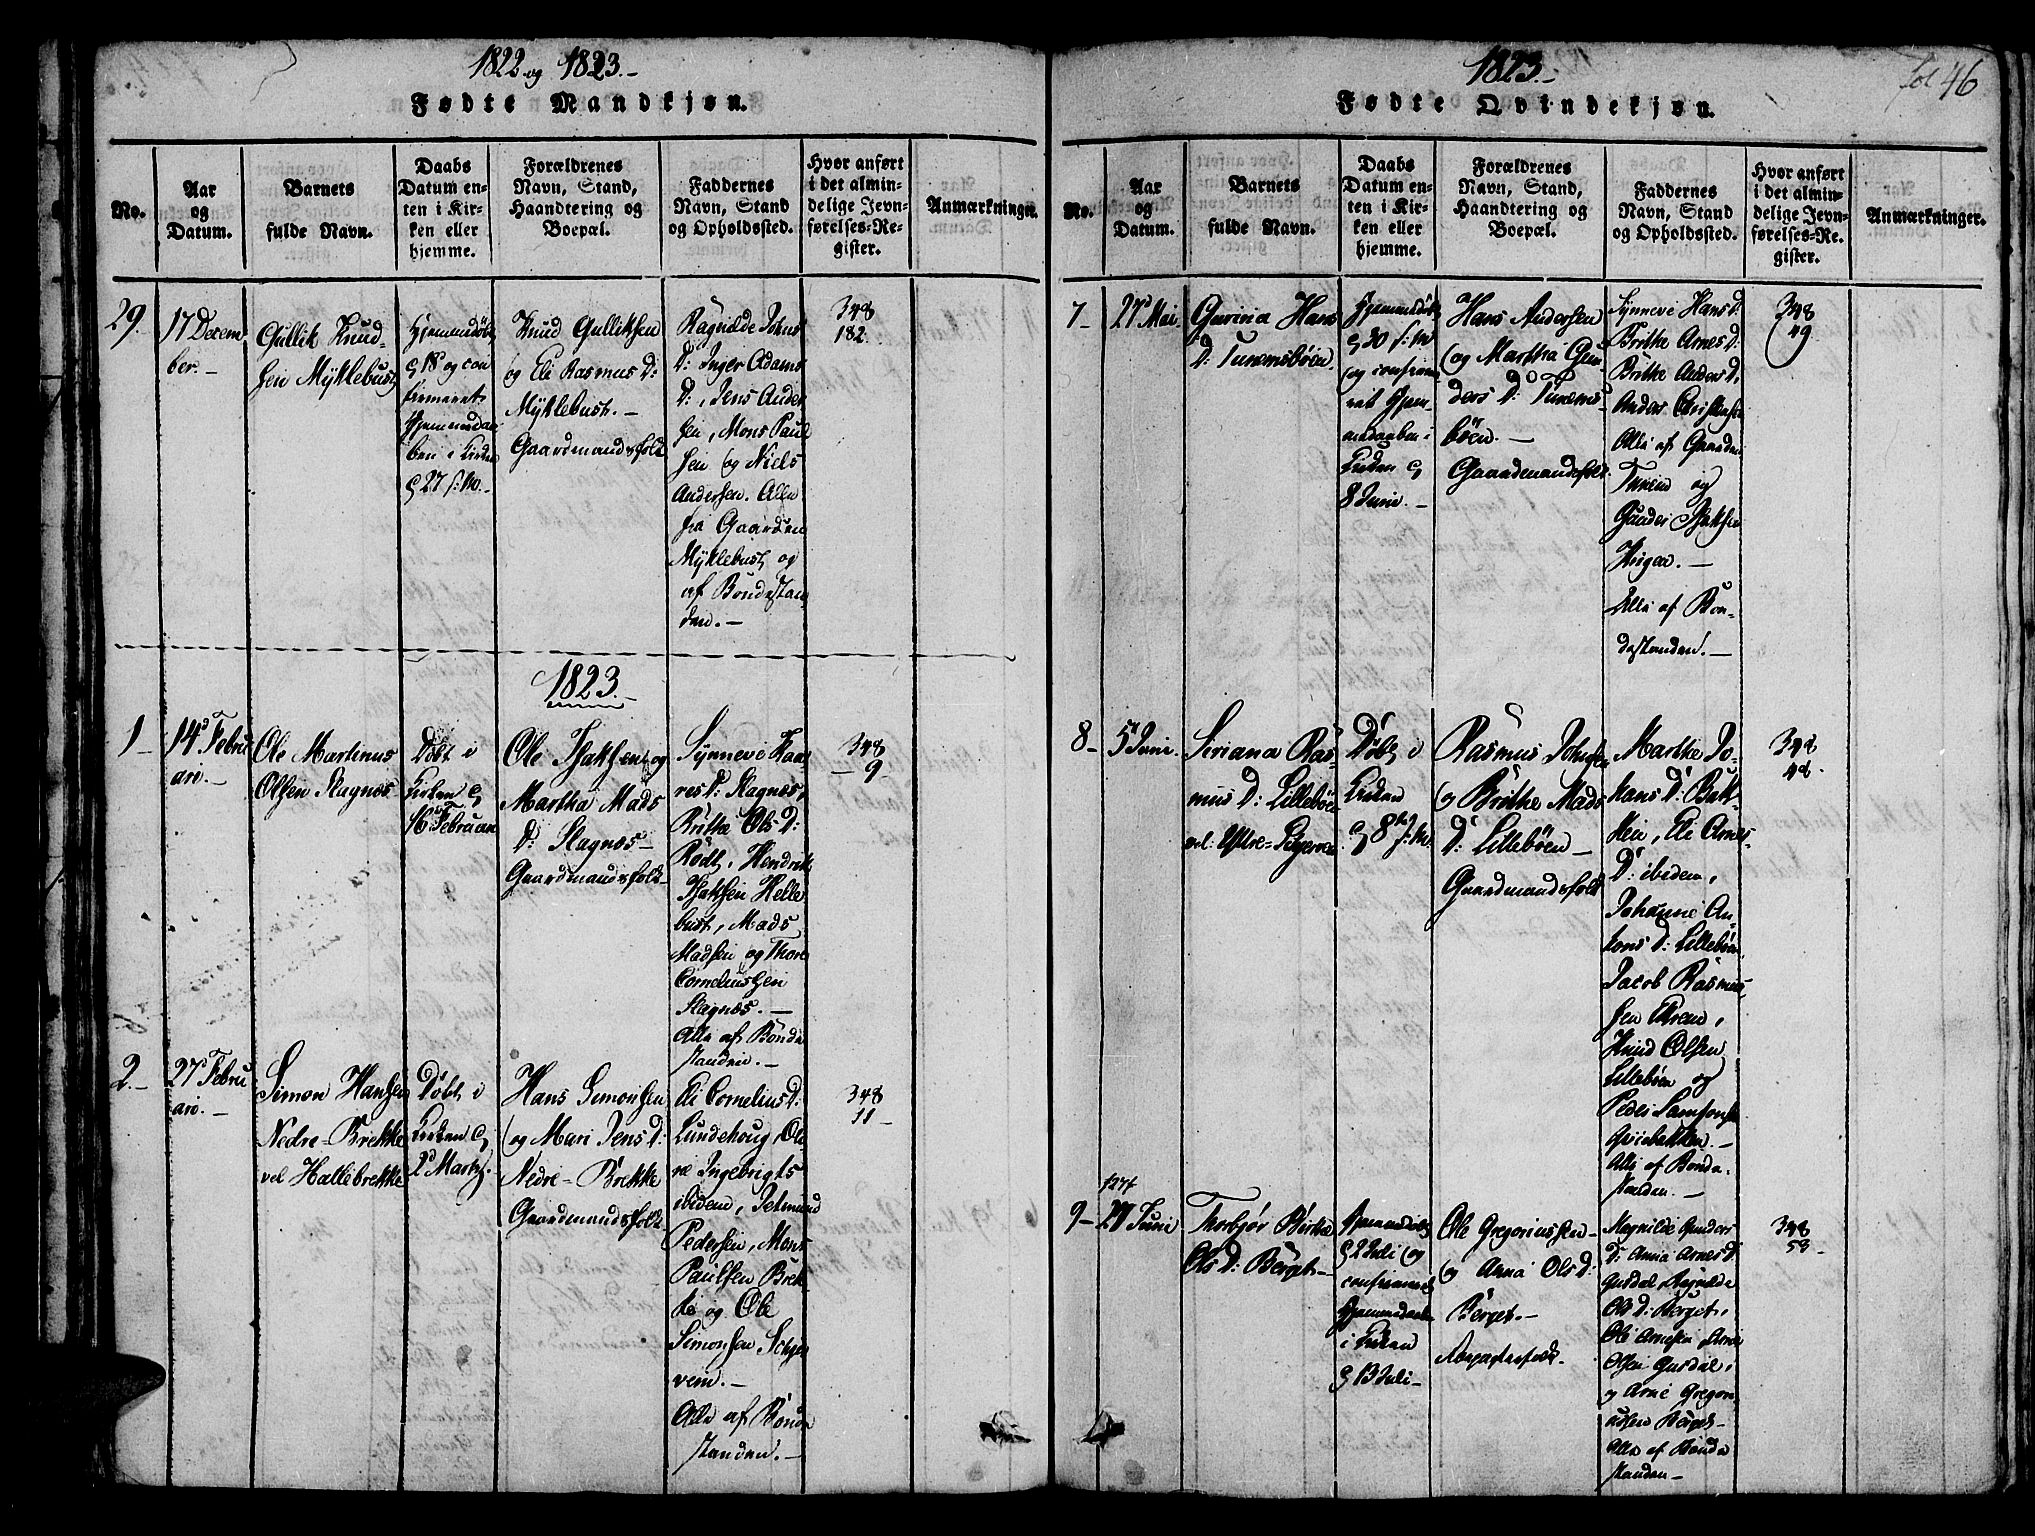 1822 og 1823.-
Fødte Mandkjøn.
No.
Aar
og
Datum.
Barnets
fulde Navn.
Daabs
Datum en-
ten i Kir-
ken eller
hjemme.
Forældrenes
Navn, Stand,
Haandtering og
Boepæl.
Faddernes
Navn, Stand
og Opholdssted.
Hvor anført
i det almin-
delige Jevn-
førelses-Re-
gister.
Anmærkninger.
29.
17 Decem-
ber.-
Gullik Knud-
sen Myklebust
Hjemmedøbt
18 og con
firmeret
Hjemmedaa
ben i Kirken
27 s: M.-
Knud Gulliksen
og Eli Rasmus D:
Myklebust.-
Gaardmandsfolk
Ragnilde Johns
D: Inger Adams
D:, Jens Ander
sen, Mons Paul
sen og Niels
Andersen. Alle
fra Gaarden
Myklebust og
af Bondestan
den.-
348
182.
1823.-
1-
14 Febru
ari.-
Ole Martinus
Olsen Slagnæs
Døbt i
Kirken
16 Februari
Ole Isaksen og
Martha Mads
D: Slagnæs-
Gaardmandsfolk-
Synneve Kaa
res D: Slagnæs,
Britte Ols D:
Rödt, Hendrik
Isaksen Helle
bust, Mads
Madsen og Thore
Corneliussen
Slagnæs.-
Alle af Bonde
standen.-
348
- 9-
2.-
27 Febru
ari.-
Simon Hansen
Nedre-Brekke
vel Hallebrekke
Døbt i
Kirken
2 Marts.
Hans Simonsen
og Mari Jens D:
Nedre-Brekke
Gaardmandsfolk
Eli Cornelius D:
Lundehoug, Ol
Ingebrigts
ibidem, Jetmund
Pedersen, Mons
Paulsen Brek
ke og Ole
Simonsen
vein.-
Alle af Bonde
standen.-
348
11
1823.-
fol 46
Fødte Qvindekjøn.
No.
Aar
og
Datum.
Barnets
fulde Navn.
Daabs
Datum en-
ten i Kir-
ken eller
hjemme.
Forældrenes
Navn, Stand,
Haandtering og
Boepæl.
Faddernes
Navn, Stand
og Opholdssted.
Hvor anført
i det almin-
delige Jevn-
førelses-Re-
gister.
Anmærkninger.
7-
27 Mai
Gurina Hans
D: Tunemsbøen.
Hjemmedøbt
30 s: M
og confirme
ret Hjem-
medaaben i
Kirken
8 Juni.-
Hans Andersen
og Martha Gun
ders D: Tunems-
bøen.-
Gaardmandsfolk
Synneve Hans D:
Britke Arnes D:
Britke Anders D:
Anders Christensen
Alle af Gaarden
Tunem og
Isaksen
Alle af Bon-
destanden.-
348
49
8-
5 Juni.
Seriana Ras-
mus D: Lillebøen
vel Ytre-
Døbt i
Kirken
8 s: M.
Rasmus Johnsen
og Brithe Mads
D: Lillebøen-
Gaardmandsfolk
Marthe Jo-
hans D: Bakk-
en, Eli Arnes
D: ibidem,
Johanne An-
tons D: Lillebøen
Jacob Rasmus-
sen
Knud Olsen
Lillebøen og
Peder Samsonsen
Alle af Bonde-
standen.-
348
48.
9-
27 Juni
Thorbjør Birthe
Ols D: Berget-
Hjemmedøbt
2 Juli og
confirmeret
Hjemmedaaben
i Kirken
13 Juli-
Ole Gregoriussen-
og Anna Ols D:
Berget.-
Magnilde Gunders
D: Anna Arnes D:
Gusdal, Ragnilde
Ols D: Berget,
Ole Arnesen, Arne
Olsen Gusdal,
og Arne Gregori
ussen Berget-
Alle af Bonde
standen-
348
58-